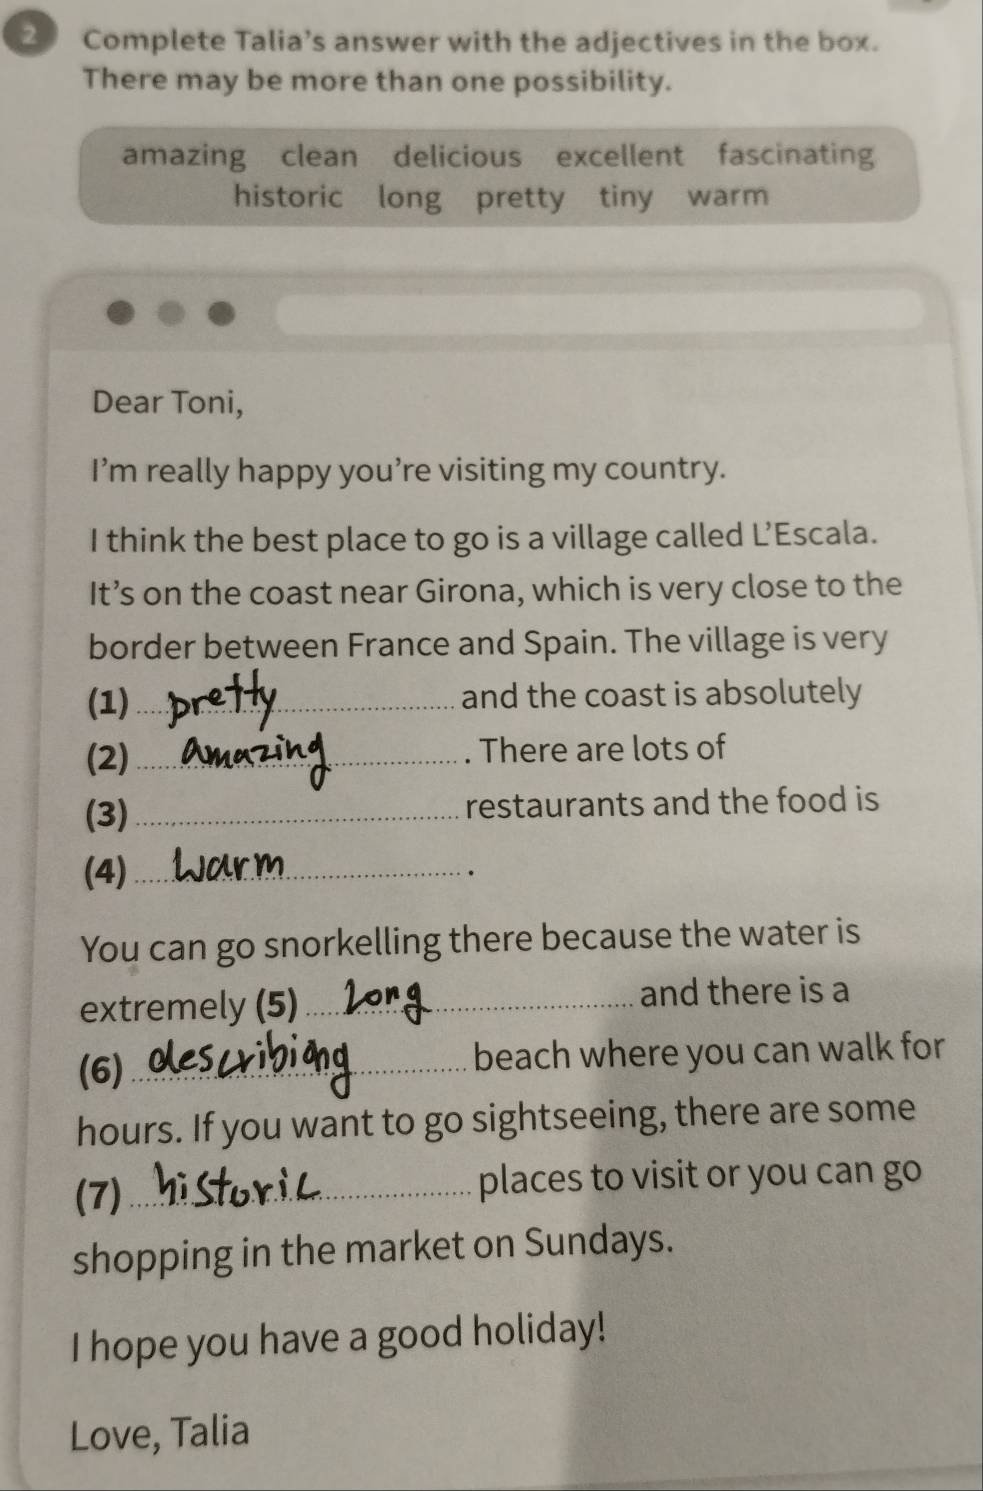 2 Complete Talia's answer with the adjectives in the box.
There may be more than one possibility.
amazing clean delicious excellent fascinating
historic long pretty tiny warm
Dear Toni,
I'm really happy you're visiting my country.
I think the best place to go is a village called L'Escala.
It's on the coast near Girona, which is very close to the
border between France and Spain. The village is very
(1) pretty and the coast is absolutely
(2) amazing . There are lots of
(3) restaurants and the food is
(4) warm .
You can go snorkelling there because the water is
extremely (5) Long and there is a
(6) describiong beach where you can walk for
hours. If you want to go sightseeing, there are some
(7) historic places to visit or you can go
shopping in the market on Sundays.
I hope you have a good holiday!
Love, Talia